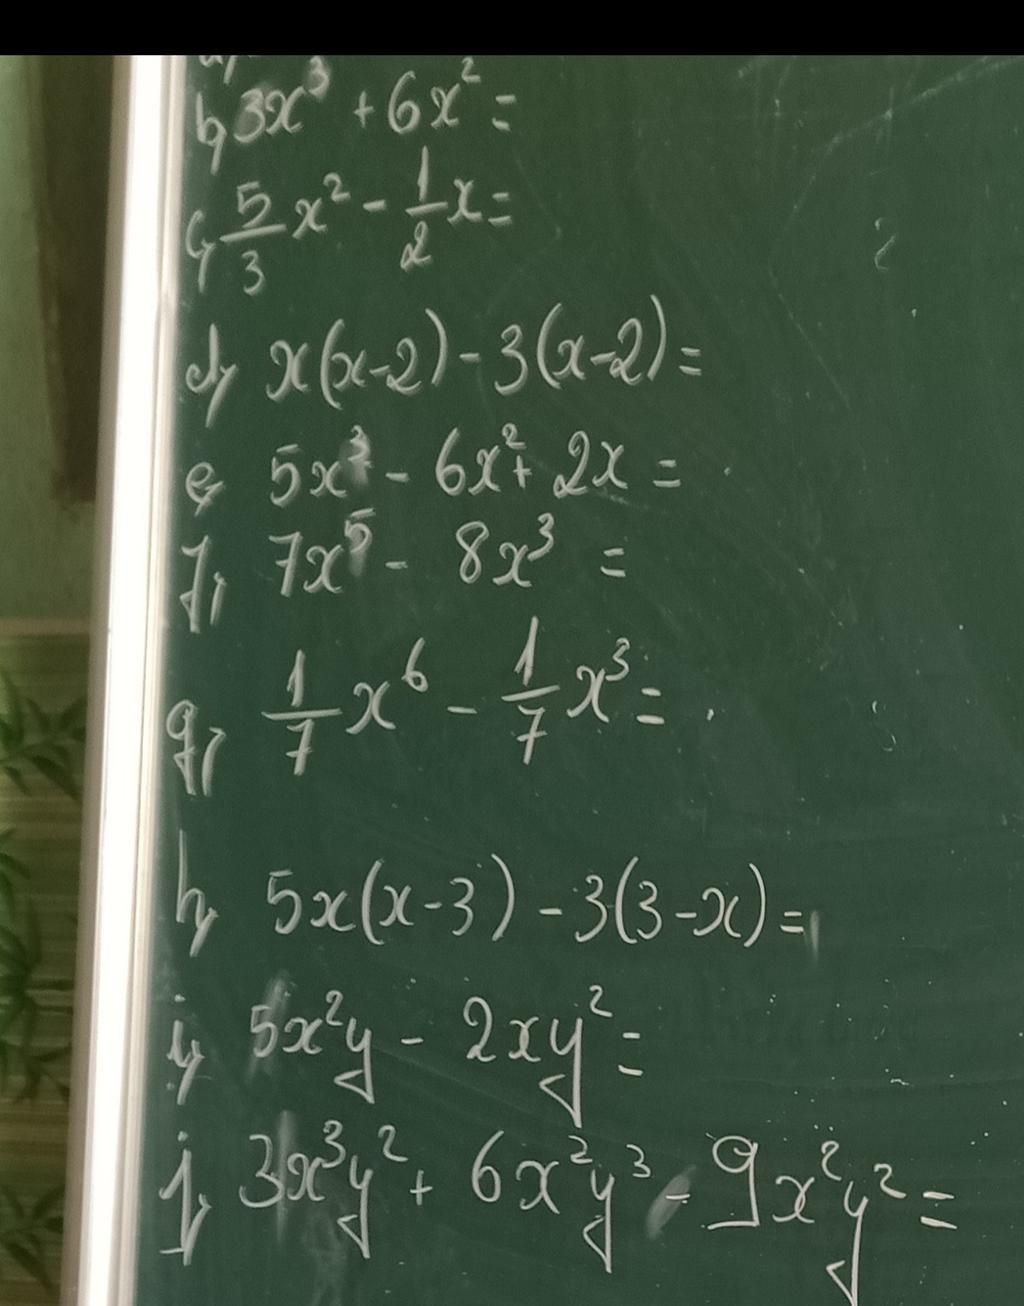 b, 3x³ + 6x² =
c, 5/3 x² - 1/2 x =
d, x(x-2) - 3(x-2) =
e, 5x³ - 6x² + 2x =
f, 7x⁵ - 8x³ =
g, 1/7 x⁶ - 1/7 x³ =
h, 5x(x-3) - 3(3-x) =
i, 5x²y - 2xy² =
j, 3x³y² + 6x²y³ - 9x²y² =